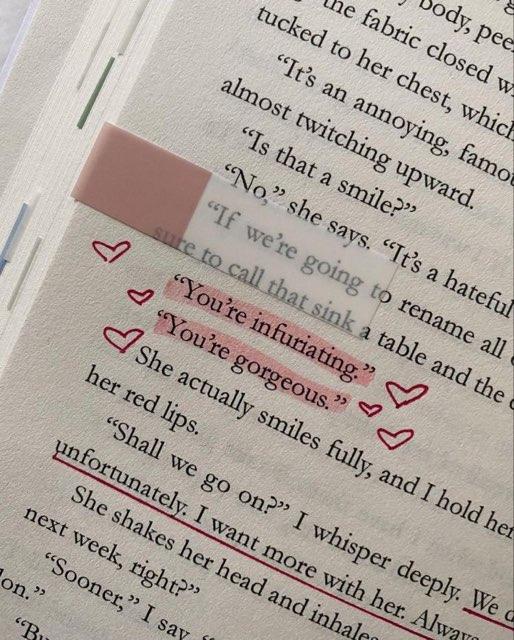 the fabric closed
tucked to her chest, which
"It's an annoying,
almost twitching upward.
"Is that a smile?"
"No," she says. "It's a hateful
"If we're going to rename all
sure to call that sink a table and the
"You're infuriating."
"You're gorgeous."
She actually smiles fully, and I hold her
her red lips.
"Shall we go on?" I whisper deeply. We
unfortunately. I want more with her. Always
She shakes her head and inhales
next week, right?"
"Sooner," I say